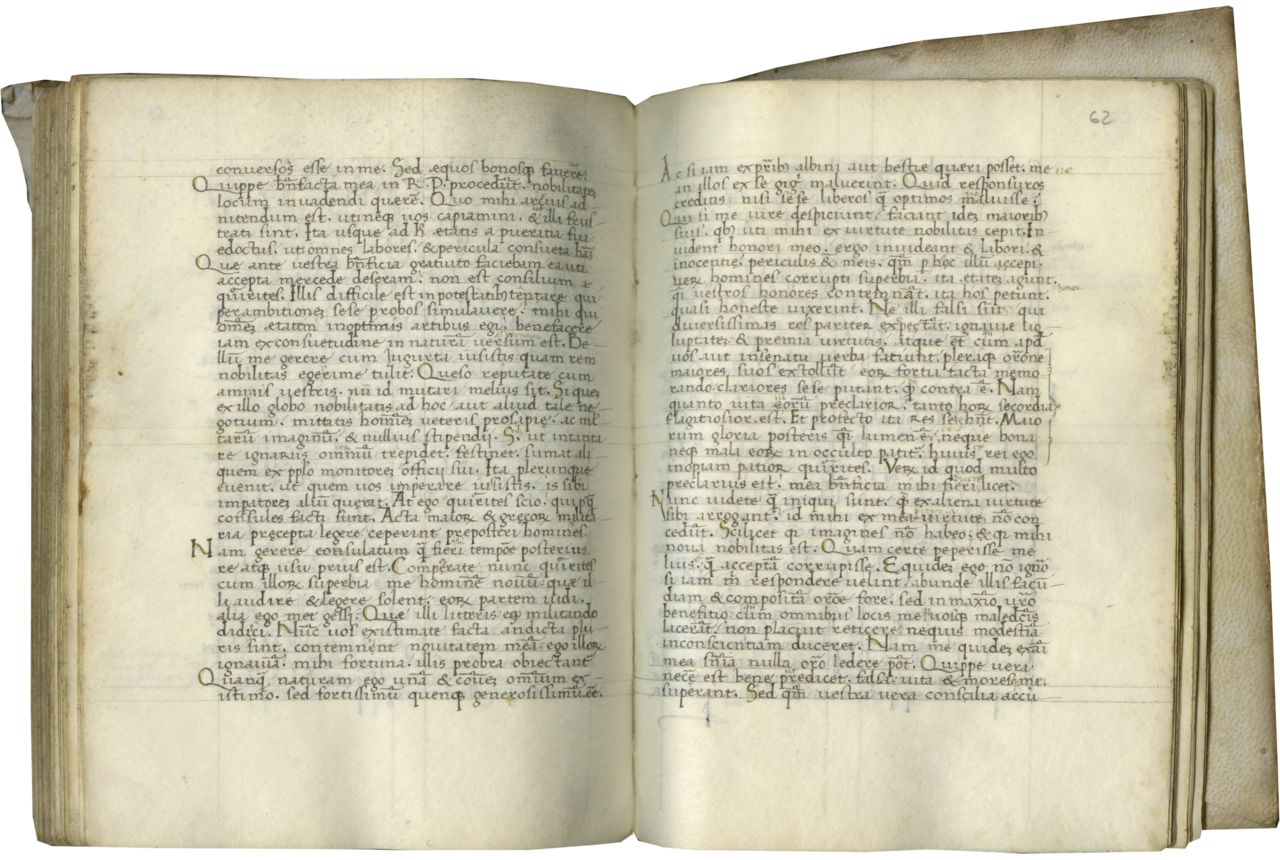 conversos esse in me. Sed æquos bonosq; favere
Quippe bñfacta mea in R. P. procedūt. nobilitatez
locum invadendi querē. Quo mihi acrius ad
nitendum est. ut neq; uos capiamini. & illi frus
trati sint. Ita usque ad etatis a pueritia fui
edoctus. ut omnes labores. & pericula consueta
Que ante vestra bñficia gratuito faciebam ea uti
accepta mercede deseram. non est consilium
quirites. Illis difficile est in potestatib; tēptare qui
per ambitionez sese probos simulavere. mihi qui
omez ætatem in optimis artibus egi. benefacere
iam ex consuetudine in naturā versum est. Be
llū me gerere cum Jugurta iusistis quam rem
nobilitas egerrime tulit. Queso reputate cum
animis vestris. nū id mutari melius sit. Si quez
ex illo globo nobilitatis ad hoc aut aliud tale ne
gotium. mittatis hominez veteris prosapiȩ. ac ml
tarū imaginū. & nullius stipendij. S. ut in tanta
re ignarus omniū trepidet. festinet. sumat ali
quem ex pplo monitorez officii sui. Ita plerunque
evenit. ut quem uos imperare iusistis. is sibi
impatorez aliū querat. At ego quirites scio. qui psq
consules facti sunt. Acta maior & grecor milita
ria precepta legere ceperint prepostri homines.
Nam gerere consulatum q fieri tempōe posterius.
re atq; usu prius est. Comperate nunc quirites
cum illor superbia me hominē novū. que il
li audire & legere solent. eor partem uidi.
alia ego met gessi. Que illi litteris ego militando
didici. Nūc uos existimate facta an dicta plu
ris sint. contemnent novitatem meā. ego illor
ignaviā. mihi fortuna. illis probra obiectant
Quanq; naturam ego unā & cōuez omnium ex
istimo. sed fortissimū quenq; generosissimū eē.
62
Ac si iam ex prib; albini aut bestie queri posset. me ne
an illos ex se gigi maluerint. Quid responsuros
creditis nisi sese liberos q optimos maluisse?
Qui si me iure despiciunt. faciunt idez maiorib;
suis. qb; uti mihi ex virtute nobilitas cepit. In
uident honori meo. ergo invideant & labori. &
inocentiȩ. periculis & meis. qm p hoc illū accepi.
uer homines corrupti superbia. ita etatez agunt.
qi vestros honores contemnāt. ita hos petunt.
honor
quasi honeste vixerint. Ne illi falsi sūt. qui
diversissimas res pariter expectāt. ignaviȩ uo
luptatez & premia virtutis. atque et cum apd
uos aut in senatu verba faciunt. pleraq; orōne
maiores suos extollūt. eor fortū facta memo
rando clariores sese putant. q contra ē. Nam
quanto vita eorū preclarior. tanto hor secordia
flagitiosior est. Et profecto ita res se hnt. Maio
rum gloria posteris qi lumen ē. neque bona
neq; mali eor in occulto patit. huius rei ego
inopiam patior quirites. Ver id quod multo
preclarius est. mea bñficia mihi fieri licet.
Nunc videte q iniqui sunt. q ex aliena virtute
sibi arrogant. id mihi ex mea virtute nō con
cedūt. Scilicet qi imagines nō habeo. & qi mihi
nova nobilitas est. Quam certe peperisse me
lius. q acceptā corrupisse. Equidez ego nō ignō
si iam m respondere velint. abunde illis facū
diam & compositā orōe fore. sed in maxīo uro
benefitio. cum omnibus locis me uosque maledcis
lacerāt. non placuit reticere. nequis modestiā
in conscientiam duceret. Nam me quidez ex aī
mea snīa nulla oro ledere pōt. Quippe veri
necē est bene predicet. falsa vita & mores mei
superant. Sed qm vestra vera consilia accu